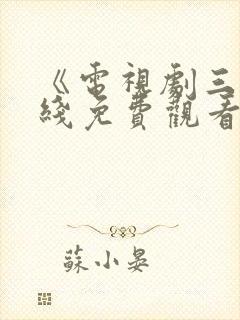 《電視劇三
綫免費觀看
蘇小晏